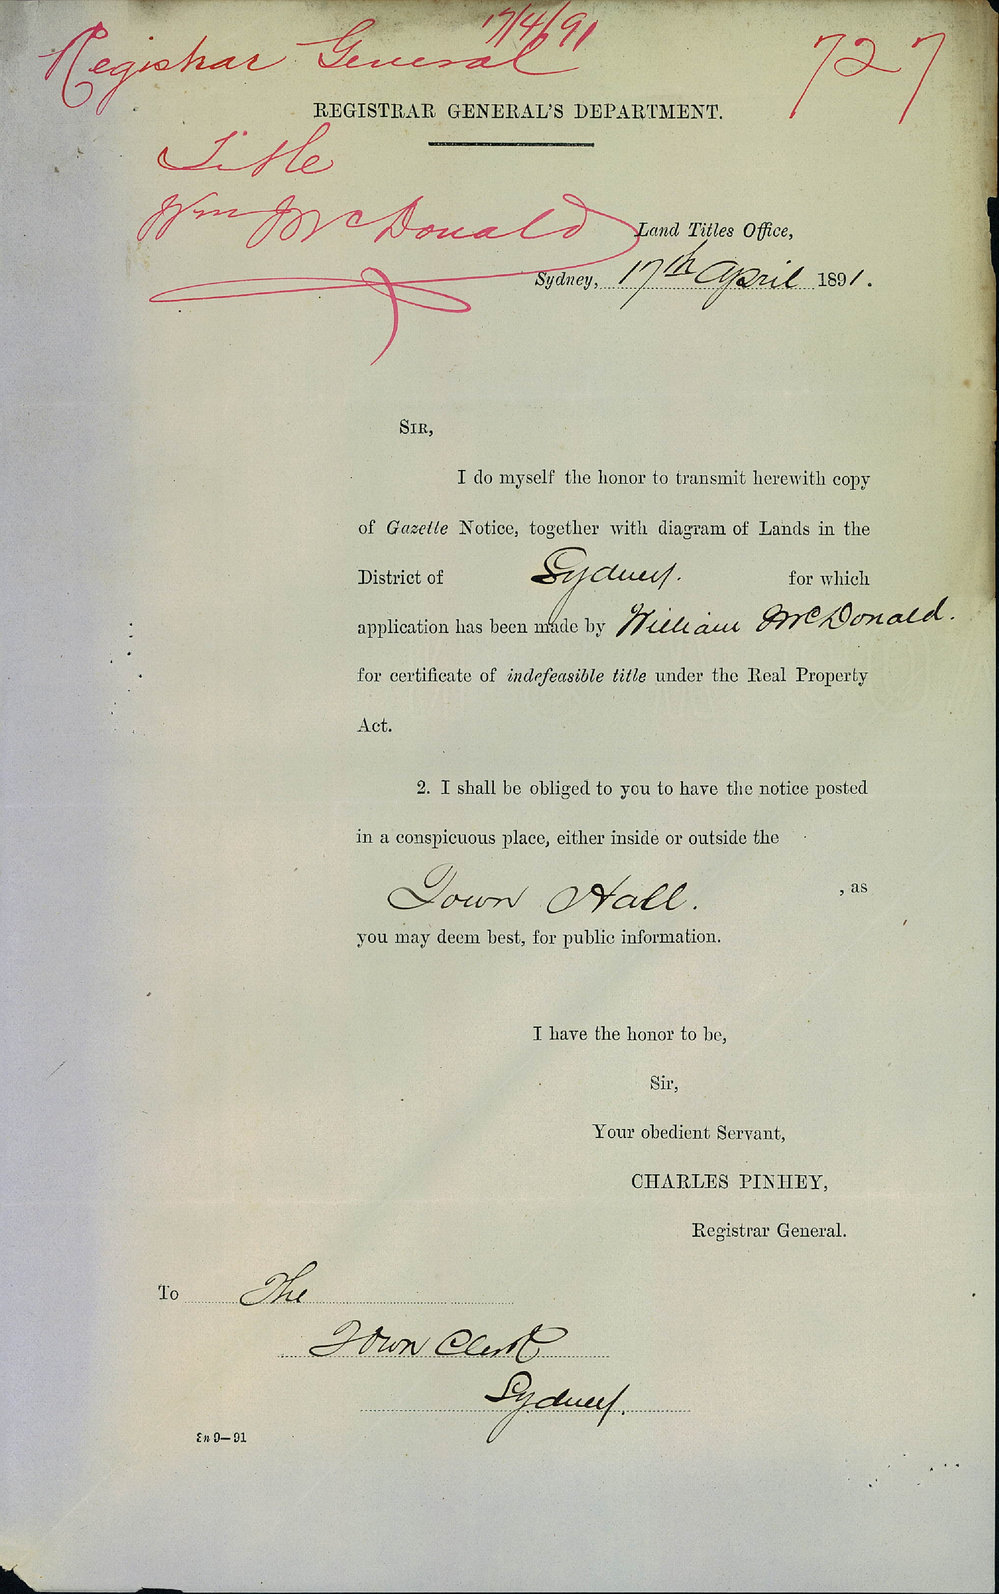 17/4/91
Registrar General
727
REGISTRAR GENERAL'S DEPARTMENT.
Title
Wm McDonald
Land Titles Office,
Sydney, 17th April 1891.
SIR,
I do myself the honor to transmit herewith copy
of Gazette Notice, together with diagram of Lands in the
District of Sydney. for which
application has been made by William McDonald.
for certificate of indefeasible title under the Real Property
Act.
2. I shall be obliged to you to have the notice posted
in a conspicuous place, either inside or outside the
Town Hall. , as
you may deem best, for public information.
I have the honor to be,
Sir,
Your obedient Servant,
CHARLES PINHEY,
Registrar General.
To The
Town Clerk
Sydney.
9—91